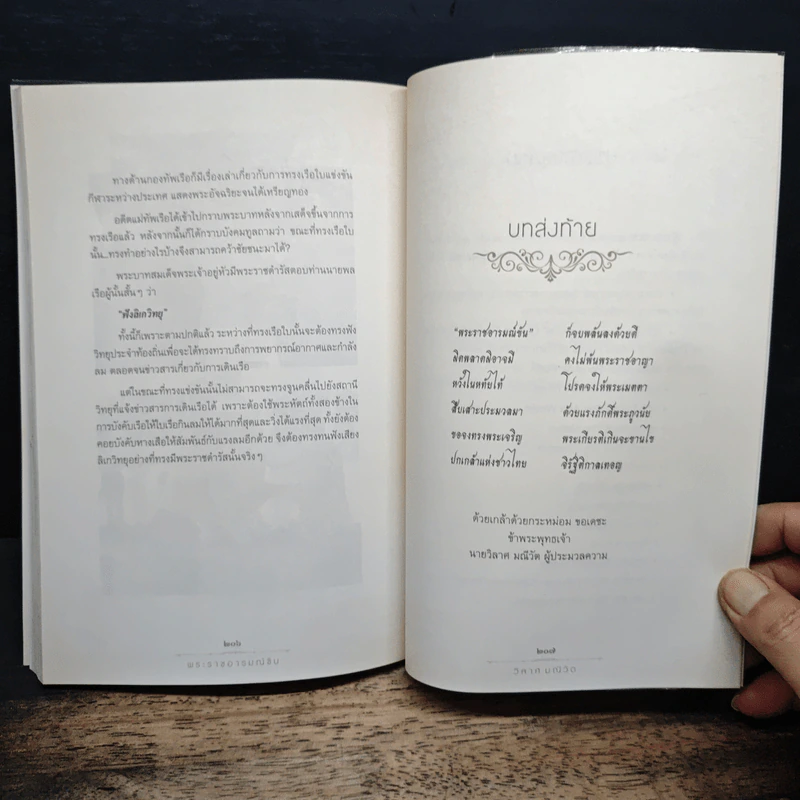 ทางด้านกองทัพเรือก็มีเรื่องเล่าเกี่ยวกับการทรงเรือใบแข่งขัน
กีฬาระหว่างประเทศ แสดงพระอัจฉริยะจนได้เหรียญทอง
อดีตแม่ทัพเรือได้เข้าไปกราบพระบาทหลังจากเสด็จขึ้นจากการ
ทรงเรือแล้ว หลังจากนั้นก็ได้กราบบังคมทูลถามว่า ขณะที่ทรงเรือใบ
นั้น...ทรงทำอย่างไรบ้างจึงสามารถคว้าชัยชนะมาได้?
พระบาทสมเด็จพระเจ้าอยู่หัวมีพระราชดำรัสตอบท่านนายพล
เรือผู้นั้นสั้นๆ ว่า
"ฟังลิเกวิทยุ"
ทั้งนี้ก็เพราะตามปกติแล้ว ระหว่างที่ทรงเรือใบนั้นจะต้องทรงฟัง
วิทยุประจำท้องถิ่นเพื่อจะได้ทรงทราบถึงการพยากรณ์อากาศและกำลัง
ลม ตลอดจนข่าวสารเกี่ยวกับการเดินเรือ
แต่ในขณะที่ทรงแข่งขันนั้นไม่สามารถจะทรงจูนคลื่นไปยังสถานี
วิทยุที่แจ้งข่าวสารการเดินเรือได้ เพราะต้องใช้พระหัตถ์ทั้งสองข้างใน
การบังคับเรือให้ใบเรือกินลมให้ได้มากที่สุดและวิ่งได้แรงที่สุด ทั้งยังต้อง
คอยบังคับหางเสือให้สัมพันธ์กับแรงลมอีกด้วย จึงต้องทรงทนฟังเสียง
ลิเกวิทยุอย่างที่ทรงมีพระราชดำรัสนั้นจริงๆ
๒๐๖
พระราชอารมณ์ขัน
บทส่งท้าย
"พระราชอารมณ์ขัน" ก็จบพลันลงด้วยดี
ผิดพลาดมีอาจมี คงไม่พ้นพระราชอาญา
หวังในหทัยไท้ โปรดจงให้พระเมตตา
สืบเสาะประมวลมา ด้วยแรงภักดีพระภูวนัย
ขอจงทรงพระเจริญ พระเกียรติเกินจะขานไข
ปกเกล้าแห่งชาวไทย จิรัฐิติกาลเทอญ
ด้วยเกล้าด้วยกระหม่อม ขอเดชะ
ข้าพระพุทธเจ้า
นายวิลาศ มณีวัต ผู้ประมวลความ
๒๐๗
วิลาศ มณีวัต